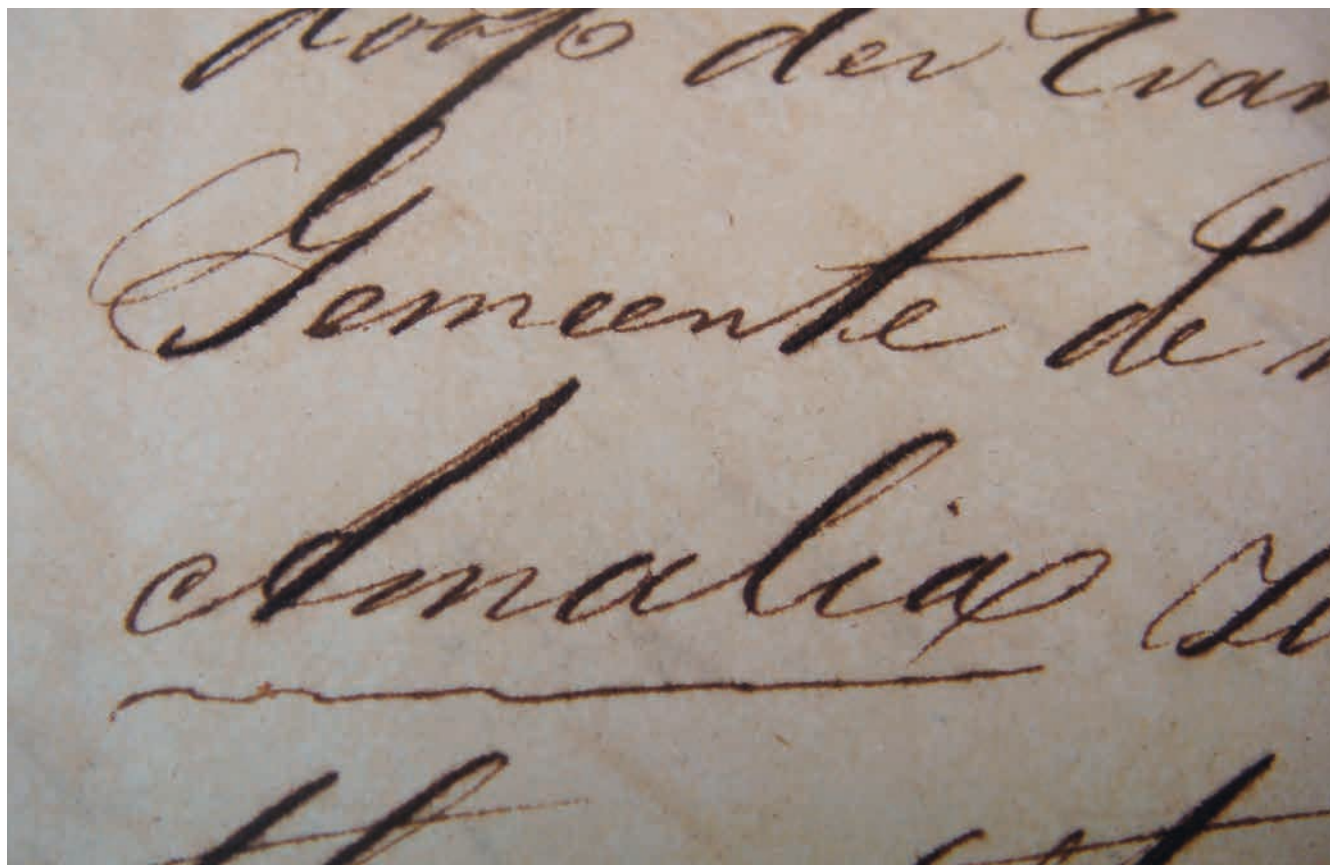 doop der Evan
Gemeente de
Amalia